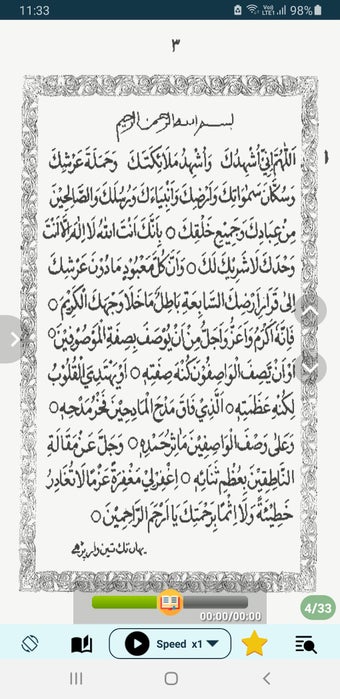 11:33
98%
٣
بسم الله الرحمن الرحيم
اَللّٰهُمَّ اِنِّيْ اُشْهِدُكَ وَاُشْهِدُ مَلَائِكَتَكَ وَحَمَلَةَ عَرْشِكَ
وَسُكَّانَ سَمٰوَاتِكَ وَاَرْضِكَ وَاَنْبِيَاءَكَ وَرُسُلَكَ وَالصَّالِحِيْنَ
مِنْ عِبَادِكَ وَجَمِيْعَ خَلْقِكَ ○ بِاَنَّكَ اَنْتَ اللهُ لَا اِلٰهَ اِلَّا اَنْتَ
وَحْدَكَ لَا شَرِيْكَ لَكَ ○ وَاَنَّ كُلَّ مَعْبُوْدٍ مَا دُوْنَ عَرْشِكَ
اِلٰى قَرَارِ اَرْضِكَ السَّابِعَةِ بَاطِلٌ مَا خَلَا وَجْهَكَ الْكَرِيْمَ ○
فَاِنَّهُ اَكْرَمُ وَاَعَزُّ وَاَجَلُّ مِنْ اَنْ يُوْصَفَ بِصِفَةِ الْمَوْصُوْفِيْنَ ○
اَوْ اَنْ تَصِفَ الْوَاصِفُوْنَ كُنْهَ صِفَتِهِ ○ اَوْ يَهْتَدِيَ الْقُلُوْبُ
لِكُنْهِ عَظَمَتِهِ ○ اَلَّذِيْ فَاقَ مَدْحَ الْمَادِحِيْنَ فَخْرُ مَدْحِهِ ○
وَعَلٰى وَصْفَ الْوَاصِفِيْنَ مَاٰثِرُ حَمْدِهِ ○ وَجَلَّ عَنْ مَقَالَةِ
النَّاطِقِيْنَ بِعُظْمِ ثَنَائِهِ ○ اِغْفِرْ لِيْ مَغْفِرَةً عَزْمًا لَا تُغَادِرُ
خَطِيْئَةً وَلَا اِثْمًا بِرَحْمَتِكَ يَا اَرْحَمَ الرَّاحِمِيْنَ ○
يهان تك تين بار پڑھے
00:00/00:00
4/33
Speed x1